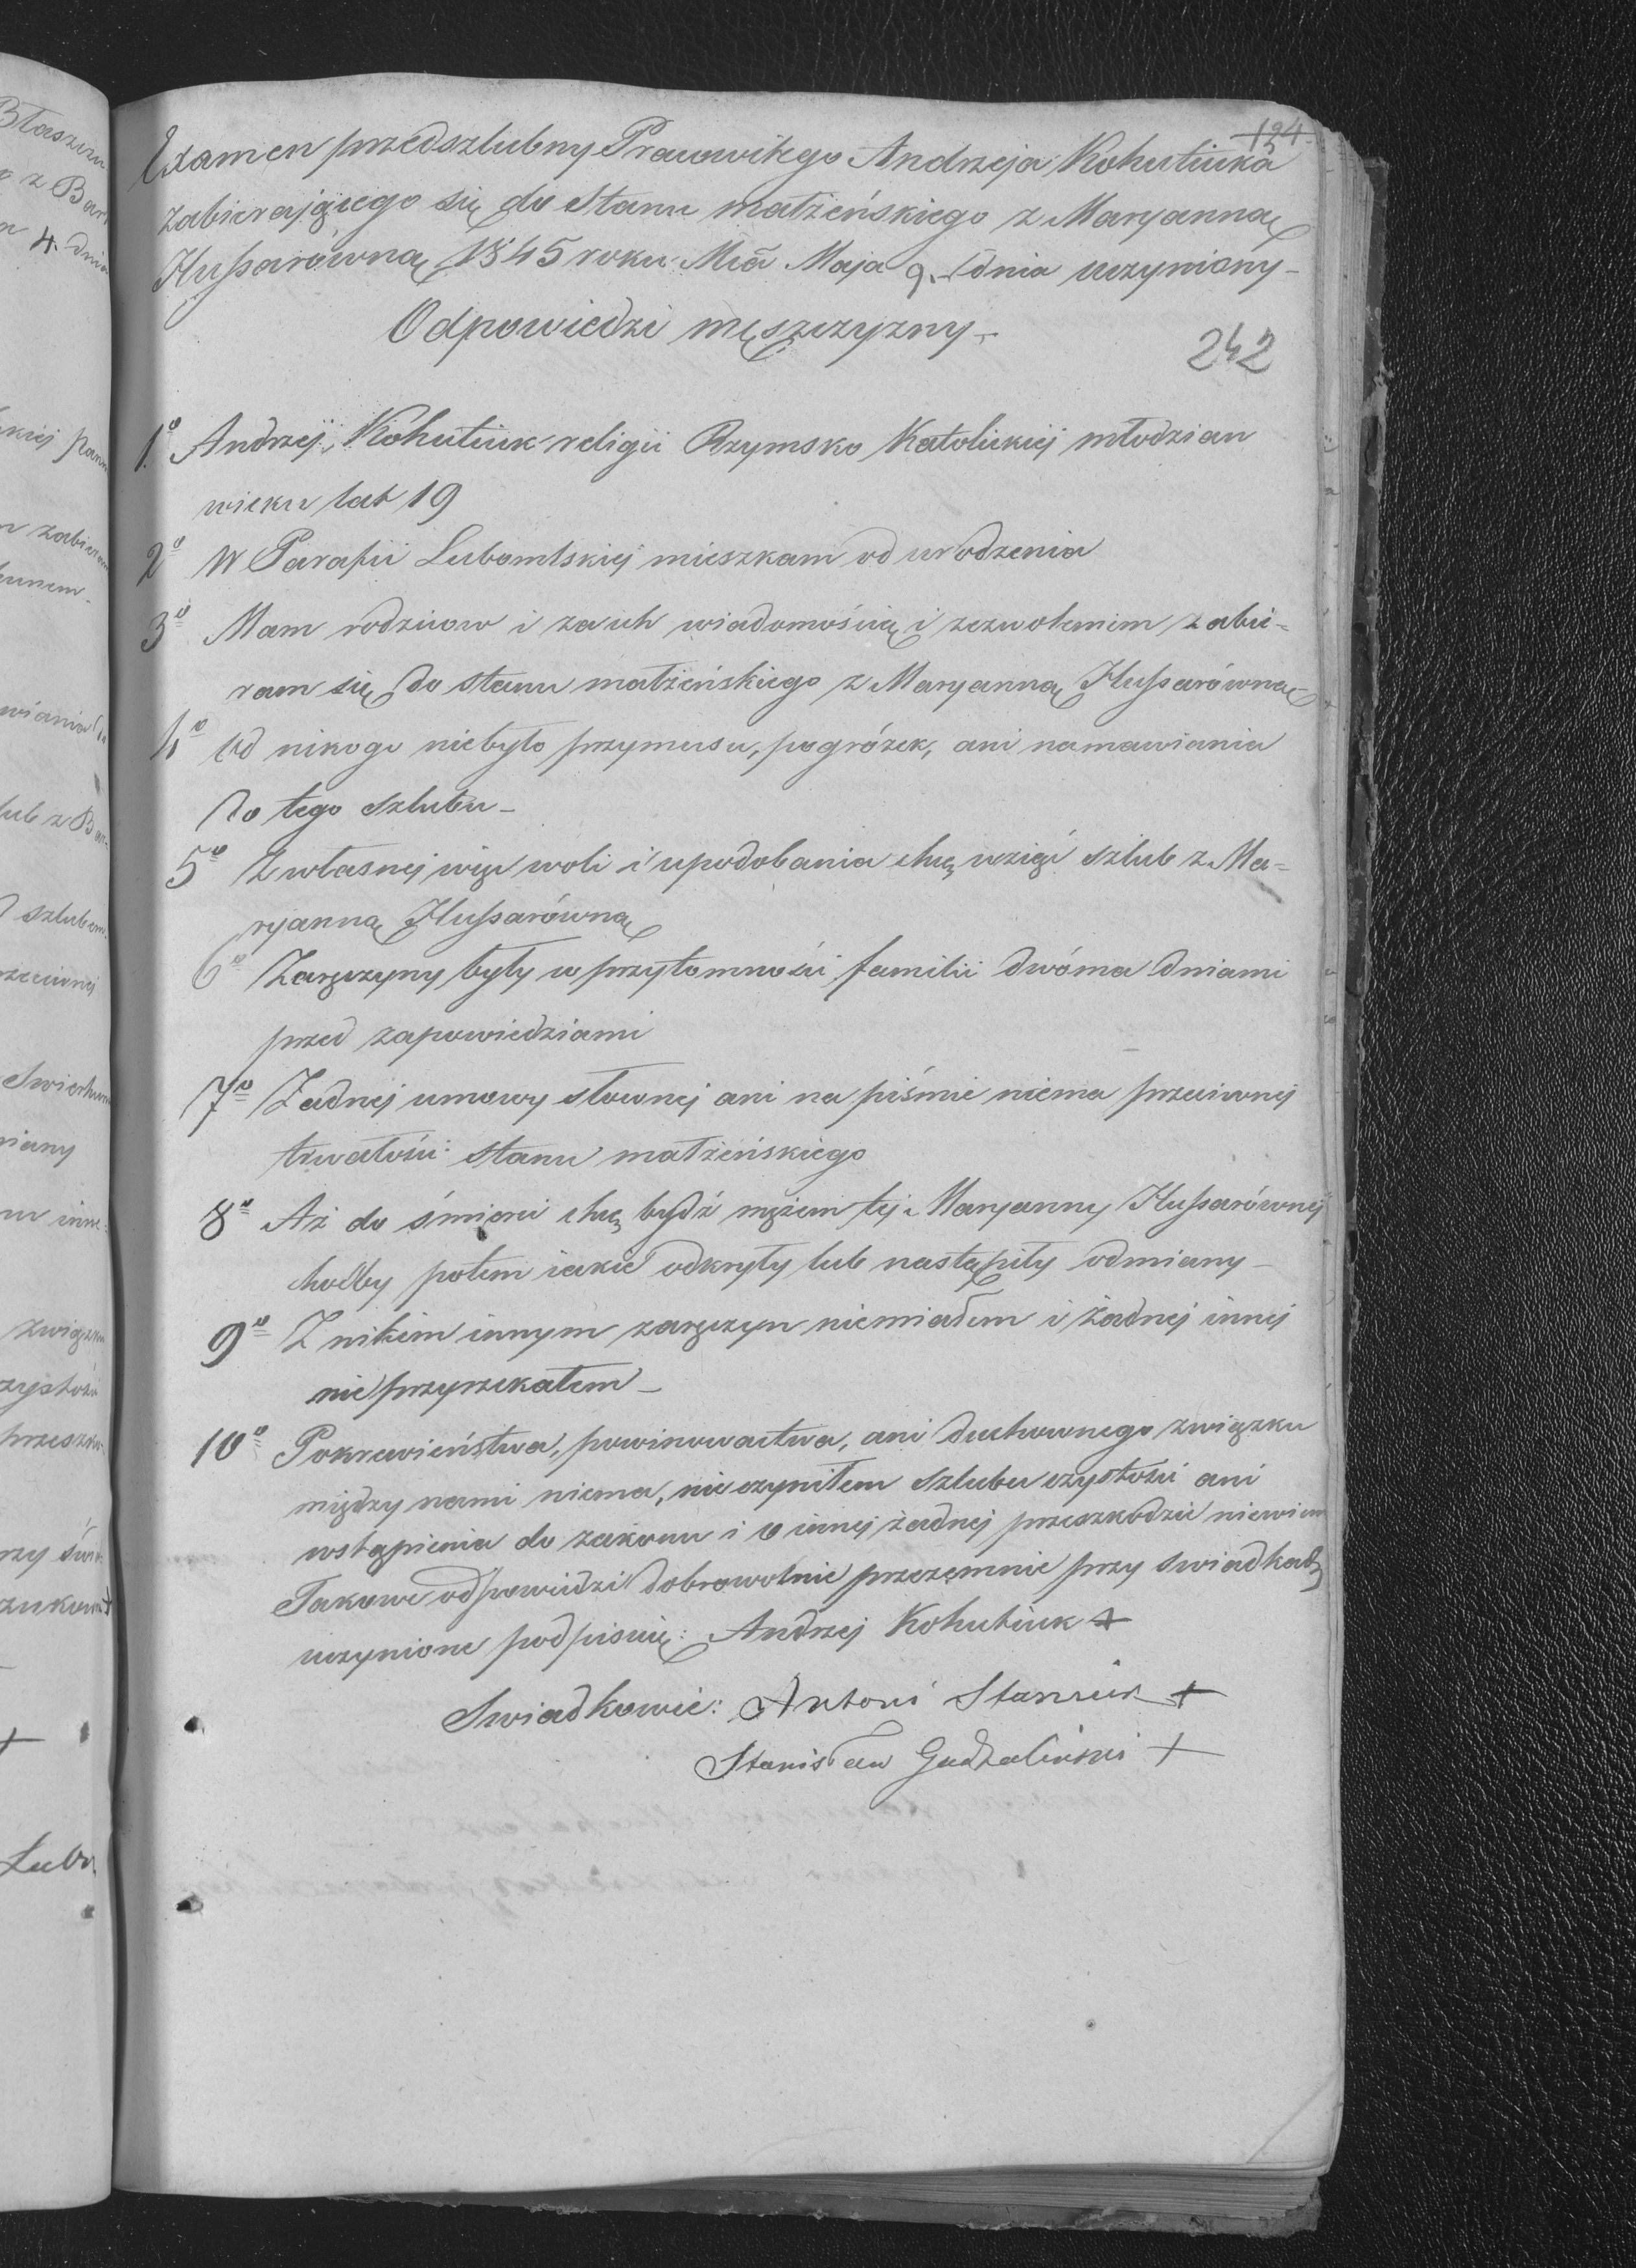 124
Examen przedszlubny Pracowitego Andrzeja Kohutiuka
zabierającego się do Stanu małżeńskiego z Maryanną
Hussarówną 1845 roku Mca Maja 9. dnia uczyniony -
Odpowiedzi męszczyzny -
242
1º Andrzej Kohutiuk religii Rzymsko Katolickiej młodzian
wieku lat 19
2º W Parafii Lubomlskiej mieszkam od urodzenia
3º Mam rodziców i za ich wiadomością i zezwoleniem zabie=
ram się do stanu małżeńskiego z Maryanną Hussarówną
4º Od nikogo niebyło przymusu, pogróżek, ani namawiania
do tego szlubu -
5º Z własnej więc woli i upodobania chcę wziąć szlub z Ma=
ryanną Hussarówną
6º Zaręczyny były w przytomności familii dwóma dniami
przed zapowiedziami
7º Żadnej umowy słownej ani na piśmie niema przeciwnej
trwałości stanu małżeńskiego
8º Aż do śmierci chcę bydź mężem tej Maryanny Hussarównej
choćby potem iakie odkryły lub nastąpiły odmiany -
9º Z nikim innym zaręczyn niemiałem i żadnej innej
nie przyrzekałem -
10º Pokrewieństwa, powinowactwa, ani duchownego związku
między nami niema, nie czyniłem szlubu czystości ani
wstąpienia do zakonu i o innej żadnej przeszkodzie niewiem
Takowe odpowiedzi dobrowolnie przezemnie przy swiadkach
uczynione podpisuię: Andrzej Kohutiuk +
Swiadkowie: Antoni Stansiuk +
Stanisław Gudzaliński +